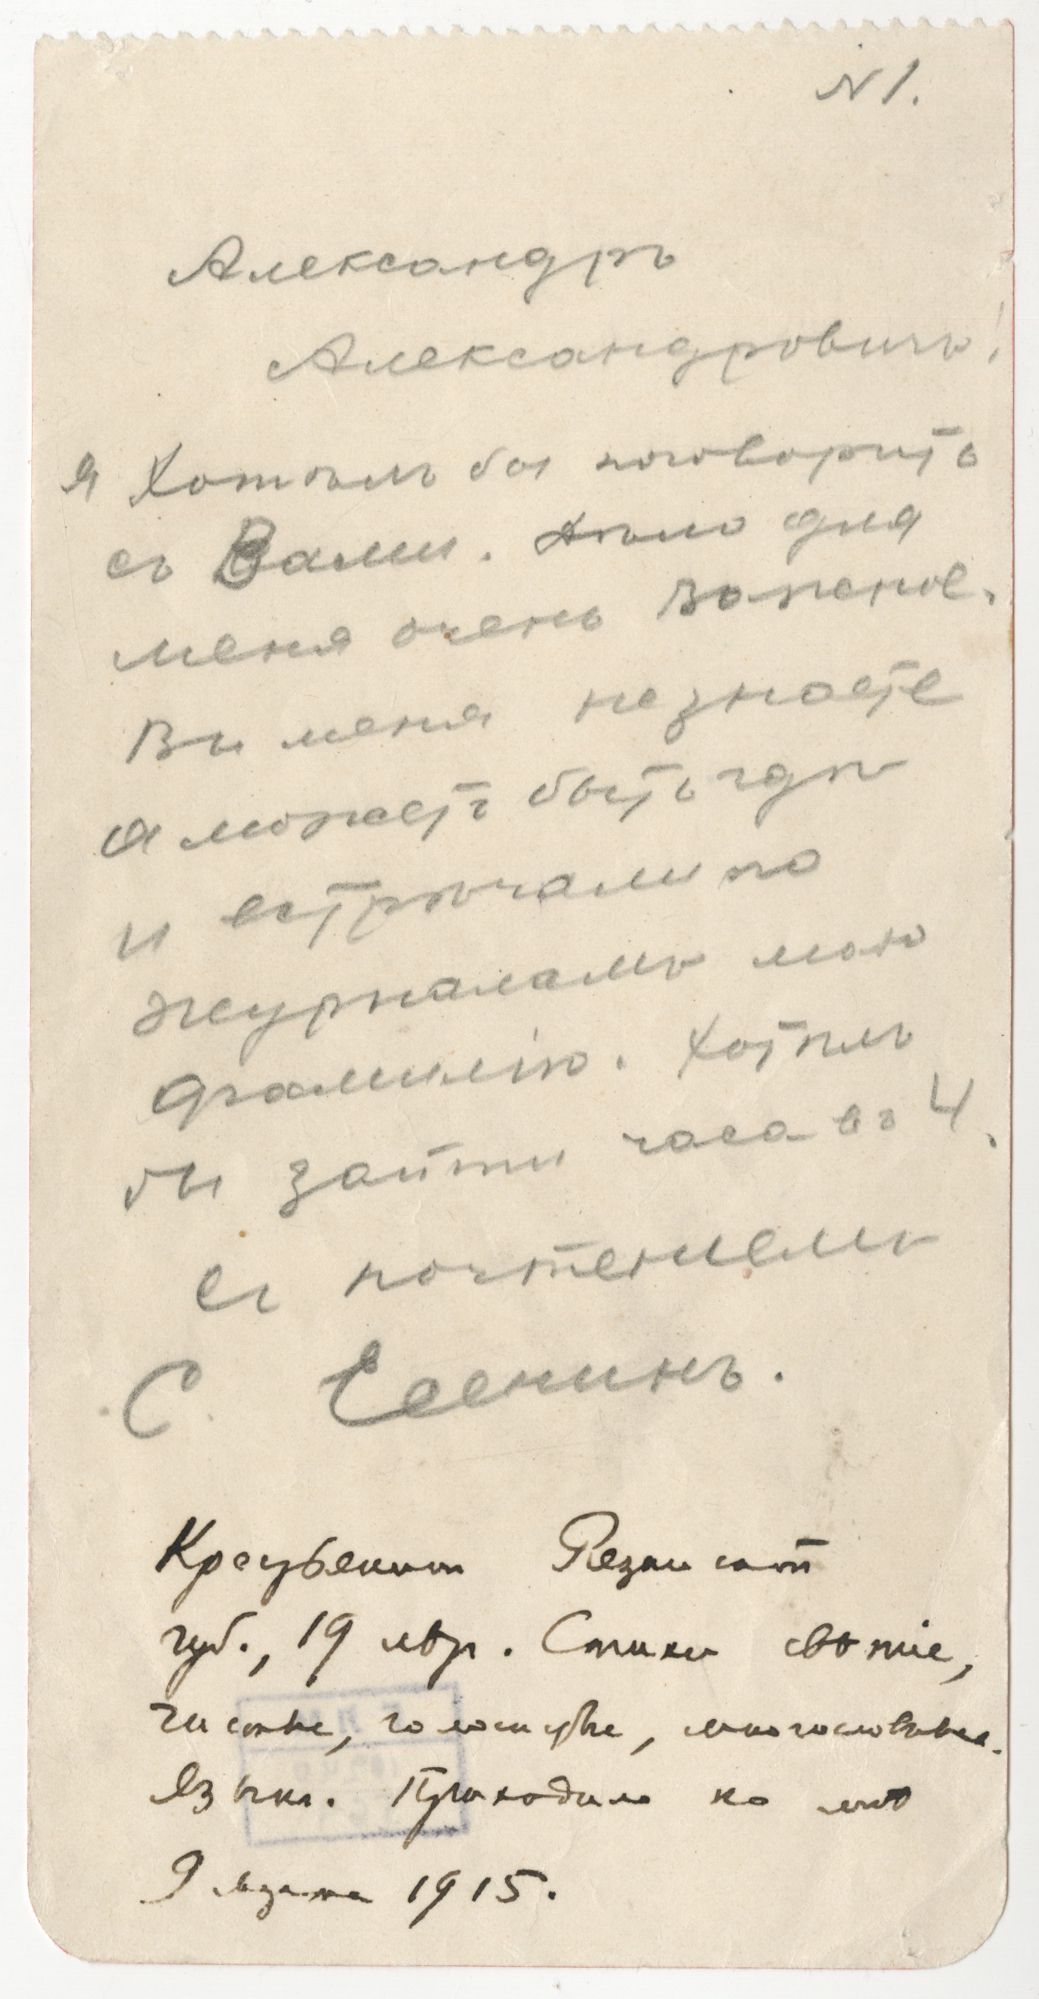 N 1.
Александръ
Александровичъ!
Я Хотѣлъ бы поговорить
съ Вами. Дѣло для
меня очень важное.
Вы меня не знаете
а можетъ быть гдѣ
и встрѣчали по
журналамъ мою
фамилію. Хотѣлъ
бы зайти часа въ 4.
Съ почтениемъ
С Есенинъ.
Крестьянин Рязанской
губ., 19 лѣт. Стихи свѣжіе,
чистые, голосистые, многословные.
Язык. Приходил ко мнѣ
9 марта 1915.